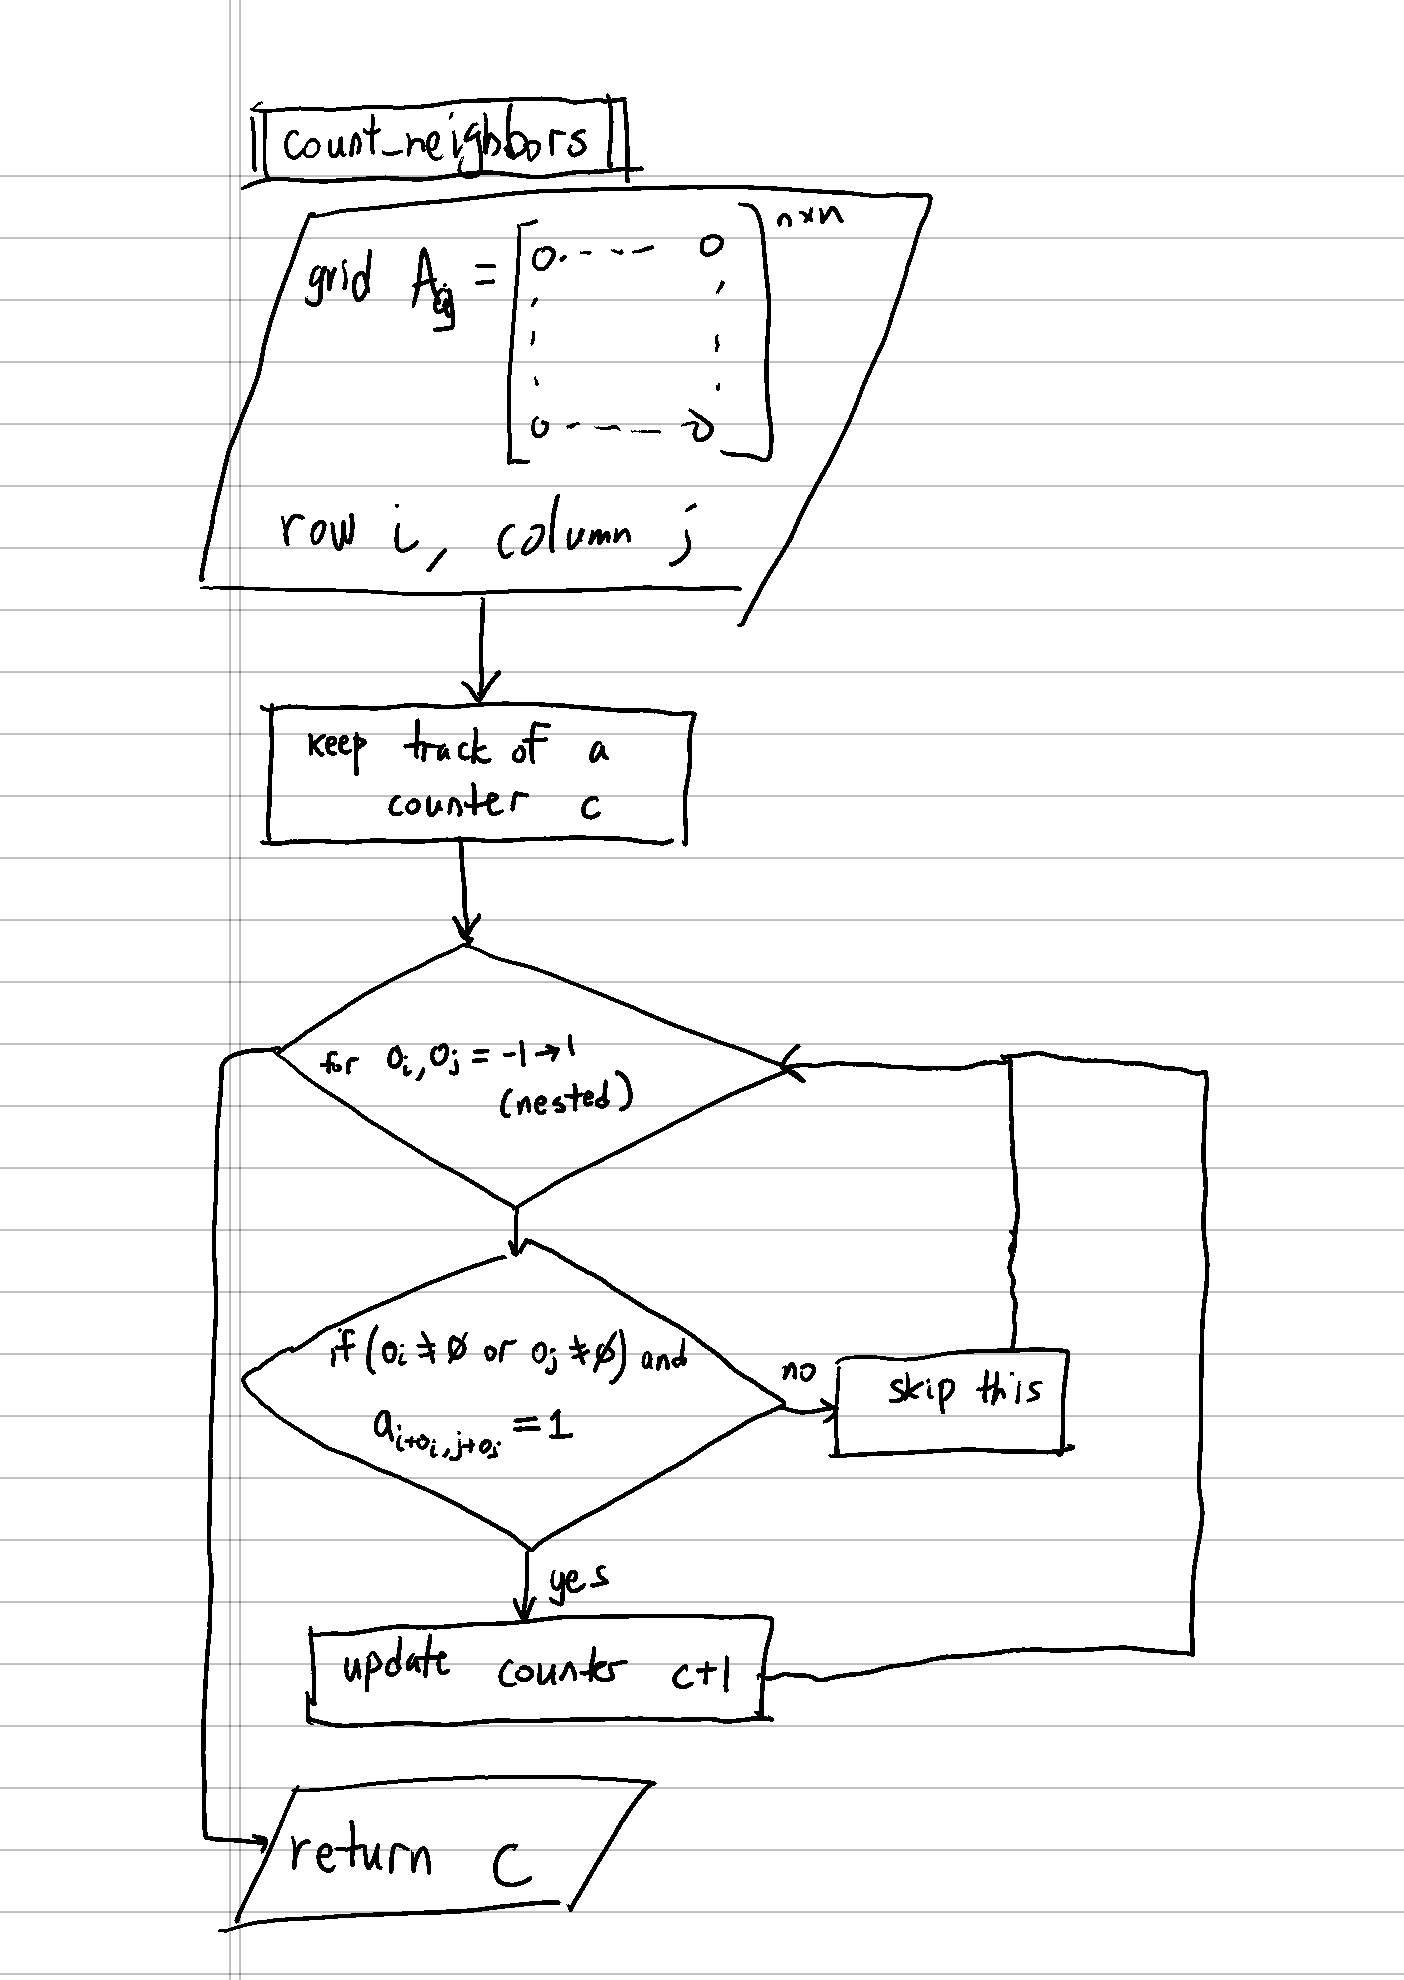 count_neighbors
n×n
grid A = [0 . - - - 0
0 - - - - 0]
row i, column j
keep track of a
counter c
for oᵢ, oⱼ = -1→1
(nested)
if (oᵢ ≠ ∅ or oⱼ ≠ ∅) and
aᵢ₊ₒᵢ,ⱼ₊ₒⱼ = 1
no
skip this
yes
update counter c+1
return C